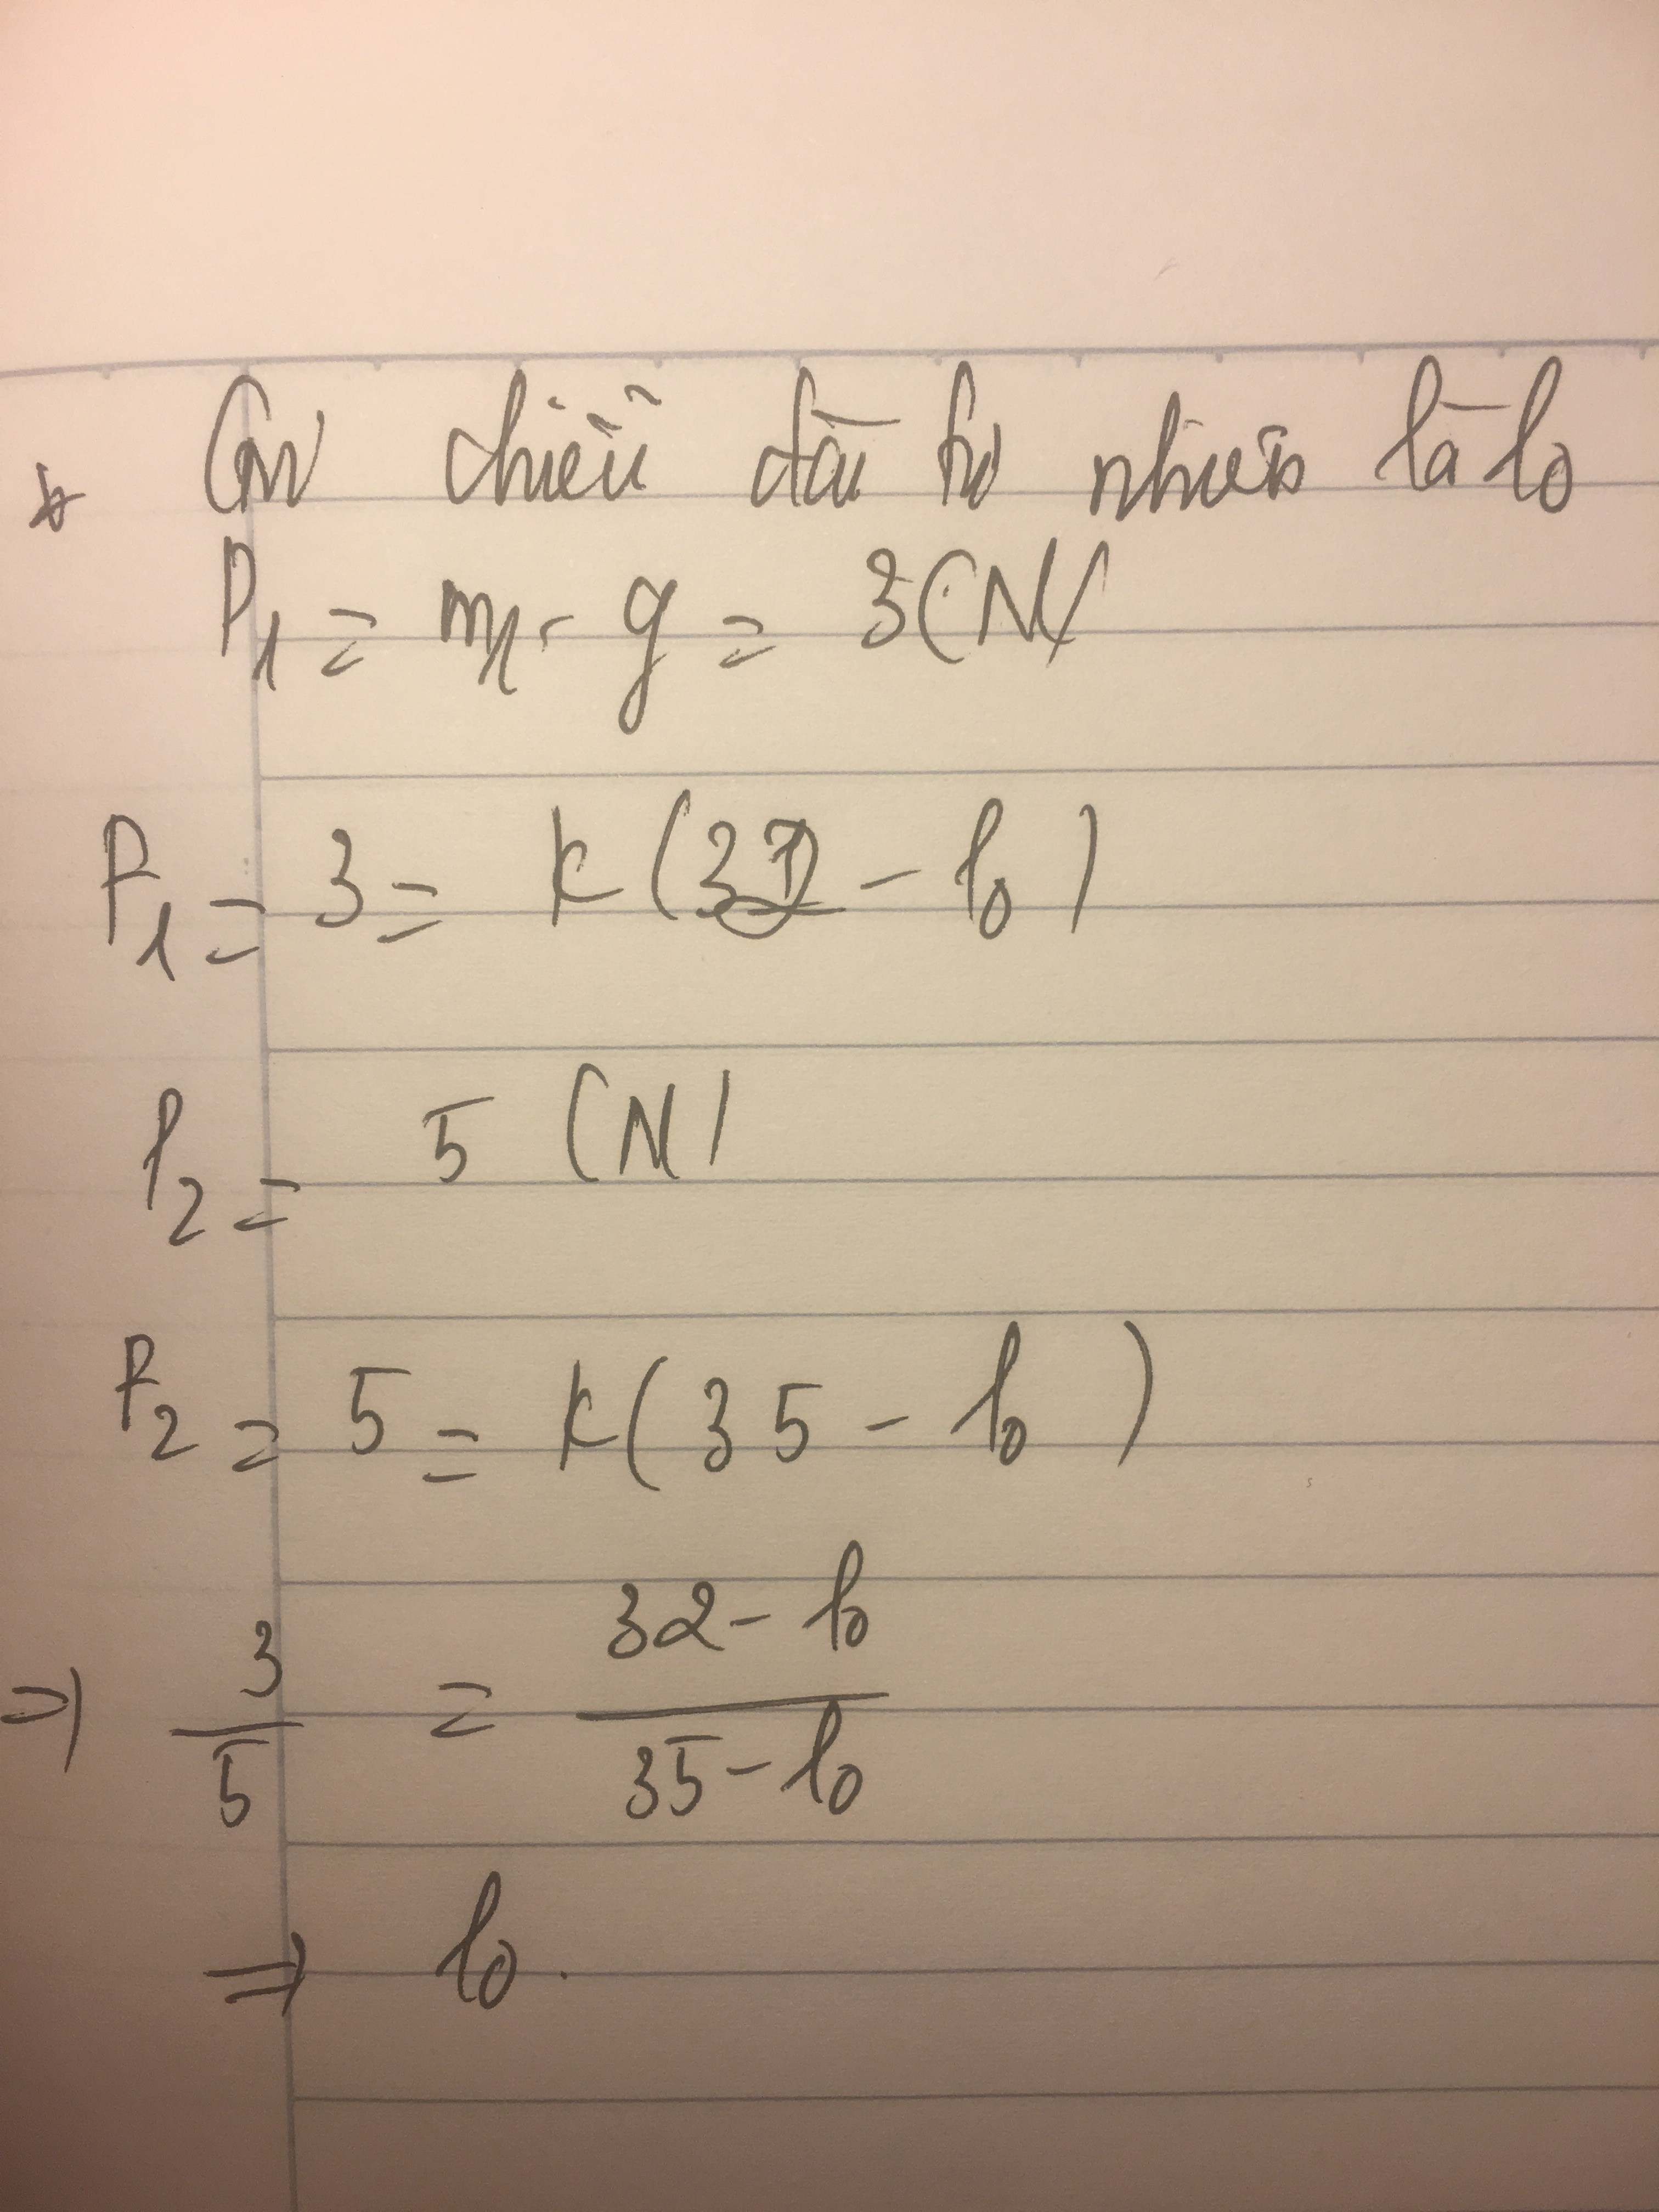 Gọi chiều dài tự nhiên là l0
P1 = m1. g = 3(N)
P1 = 3 = k(32 - l0)
P2 = 5 (N)
P2 = 5 = k(35 - l0)
=> 3/5 = 32 - l0 / 35 - l0
=> l0.